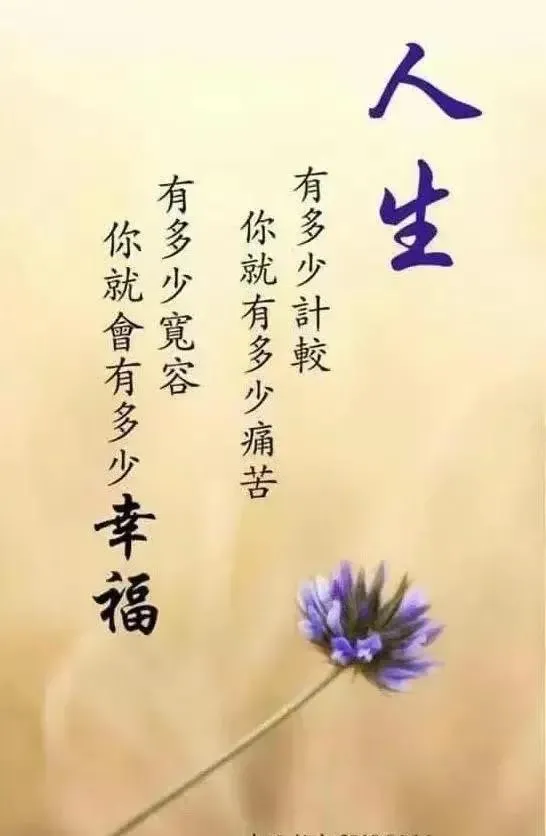 人生
有多少計較
你就有多少痛苦
有多少寬容
你就會有多少幸福